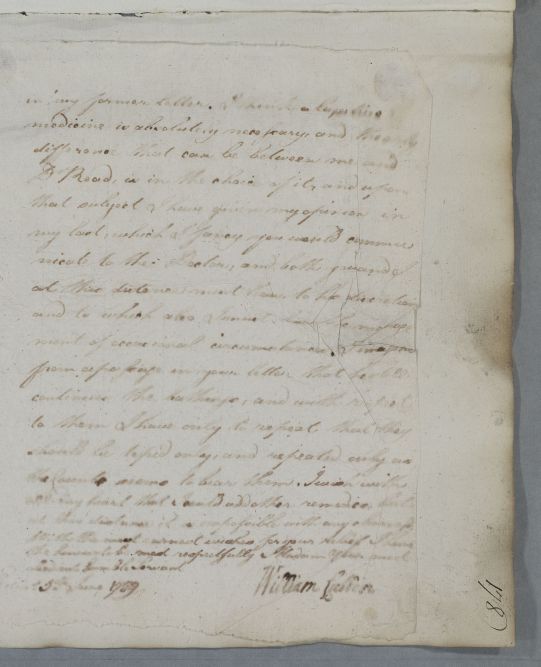 in my former letter. I think a laxative
medicine is absolutely necessary, and the only
difference that can be between me and
Dr Read, is in the choice of it, and upon
that subject I have given my opinion in
my last, which I fancy you would commu
nicate to the Doctor, and both you and I
at this distance must leave to his discretion
and to which also I must the manage
ment of occasional circumstances. I
from a passage in your letter that he still
continues the bathings, and with respect
to them I have only to repeat that they
should be tepid only, and repeated only as
the seems to bear them. I wish with
all my heart that I could add other remedies but
at this distance it is impossible with any
With the most earnest wishes for your relief I have
the honour to be most respectfully Madam Your most
obedient humble Servant
5th June 1789. William Cullen
148